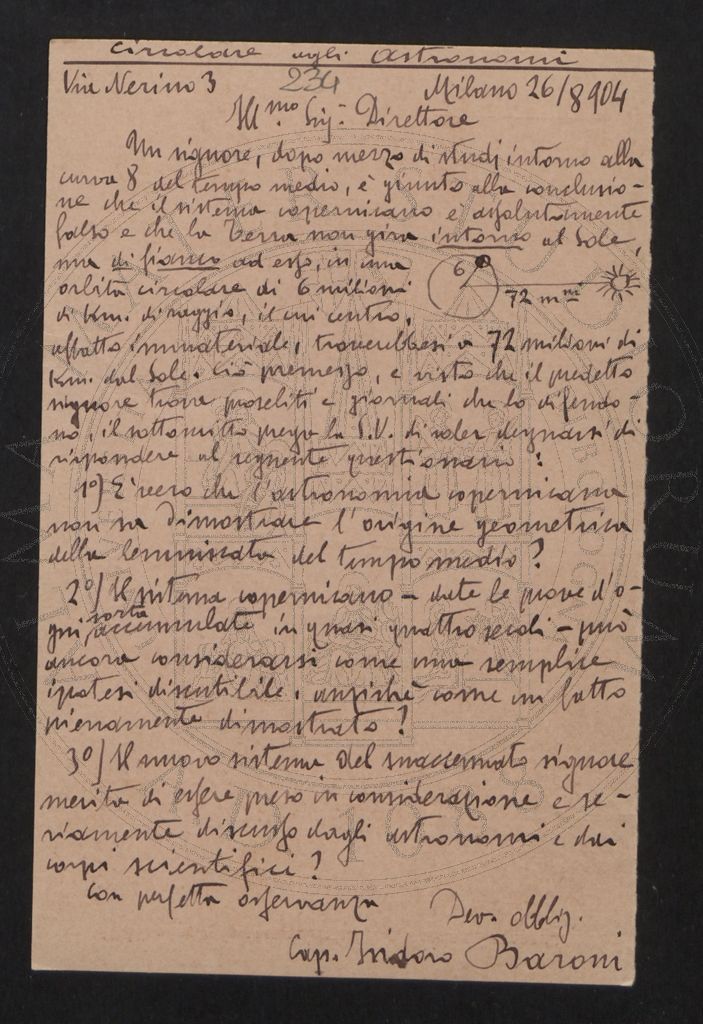 Circolare agli Astronomi
Via Nerino 3 234 Milano 26/8904
Ill.mo Sig.r Direttore
Un signore, dopo mezzo di studj intorno alla
curva 8 del tempo medio, è giunto alla conclusio-
ne che il sistema copernicano è assolutamente
falso e che la Terra non gira intorno al Sole,
ma di fianco ad esso, in una
orbita circolare di 6 milioni
di km. di raggio, il cui centro,
affatto immateriale, troverebbesi a 72 milioni di
km. dal Sole. Ciò premesso, e visto che il predetto
signore trova proseliti e giornali che lo difendo-
no, il sottoscritto prega la S.V. di voler degnarsi di
rispondere al seguente questionario:
6
72 m.ni
1º) È vero che l'astronomia copernicana
non sa dimostrare l'origine geometrica
della lemniscata del tempo medio?
2º) Il sistema copernicano – date le prove d'o-
gni sorta accumulate in quasi quattro secoli – può
ancora considerarsi come una semplice
ipotesi discutibile, anzichè come un fatto
pienamente dimostrato?
3º) Il nuovo sistema del suaccennato signore
merita di essere preso in considerazione e se-
riamente discusso dagli astronomi e dai
corpi scientifici?
Con perfetta osservanza
Dev. obblig.
Cap. Isidoro Baroni